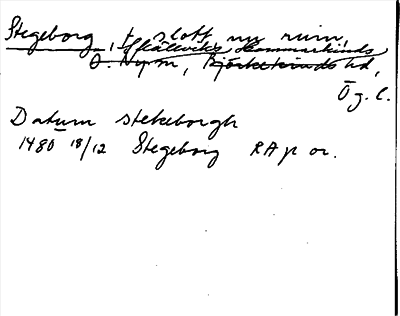 Stegeborg, f slott nu ruin,
Skällviks Hammarkinds
O. Ny sn, Björkekinds hd,
Ög. l.
Datum stekeborgh
1480 18/12 Stegeborg RAp or.